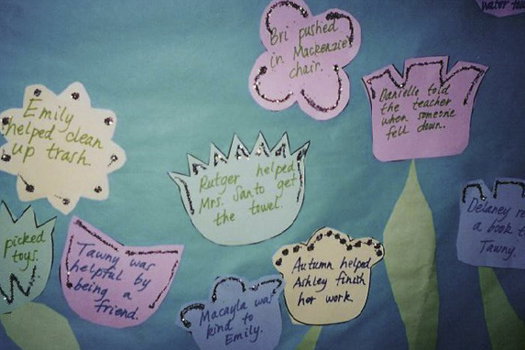 water to
Bri pushed
in Mackenzie
chair.
Danielle told
the teacher
when someone
fell down.
Emily
helped clean
up trash.
Rutger helped
Mrs. Santo get
the towel.
Delaney
a book t
Tawny.
picked
toys.
Tawny was
helpful by
being a
friend.
Autumn helped
Ashley finish
her work
Macayla was
kind to
Emily.